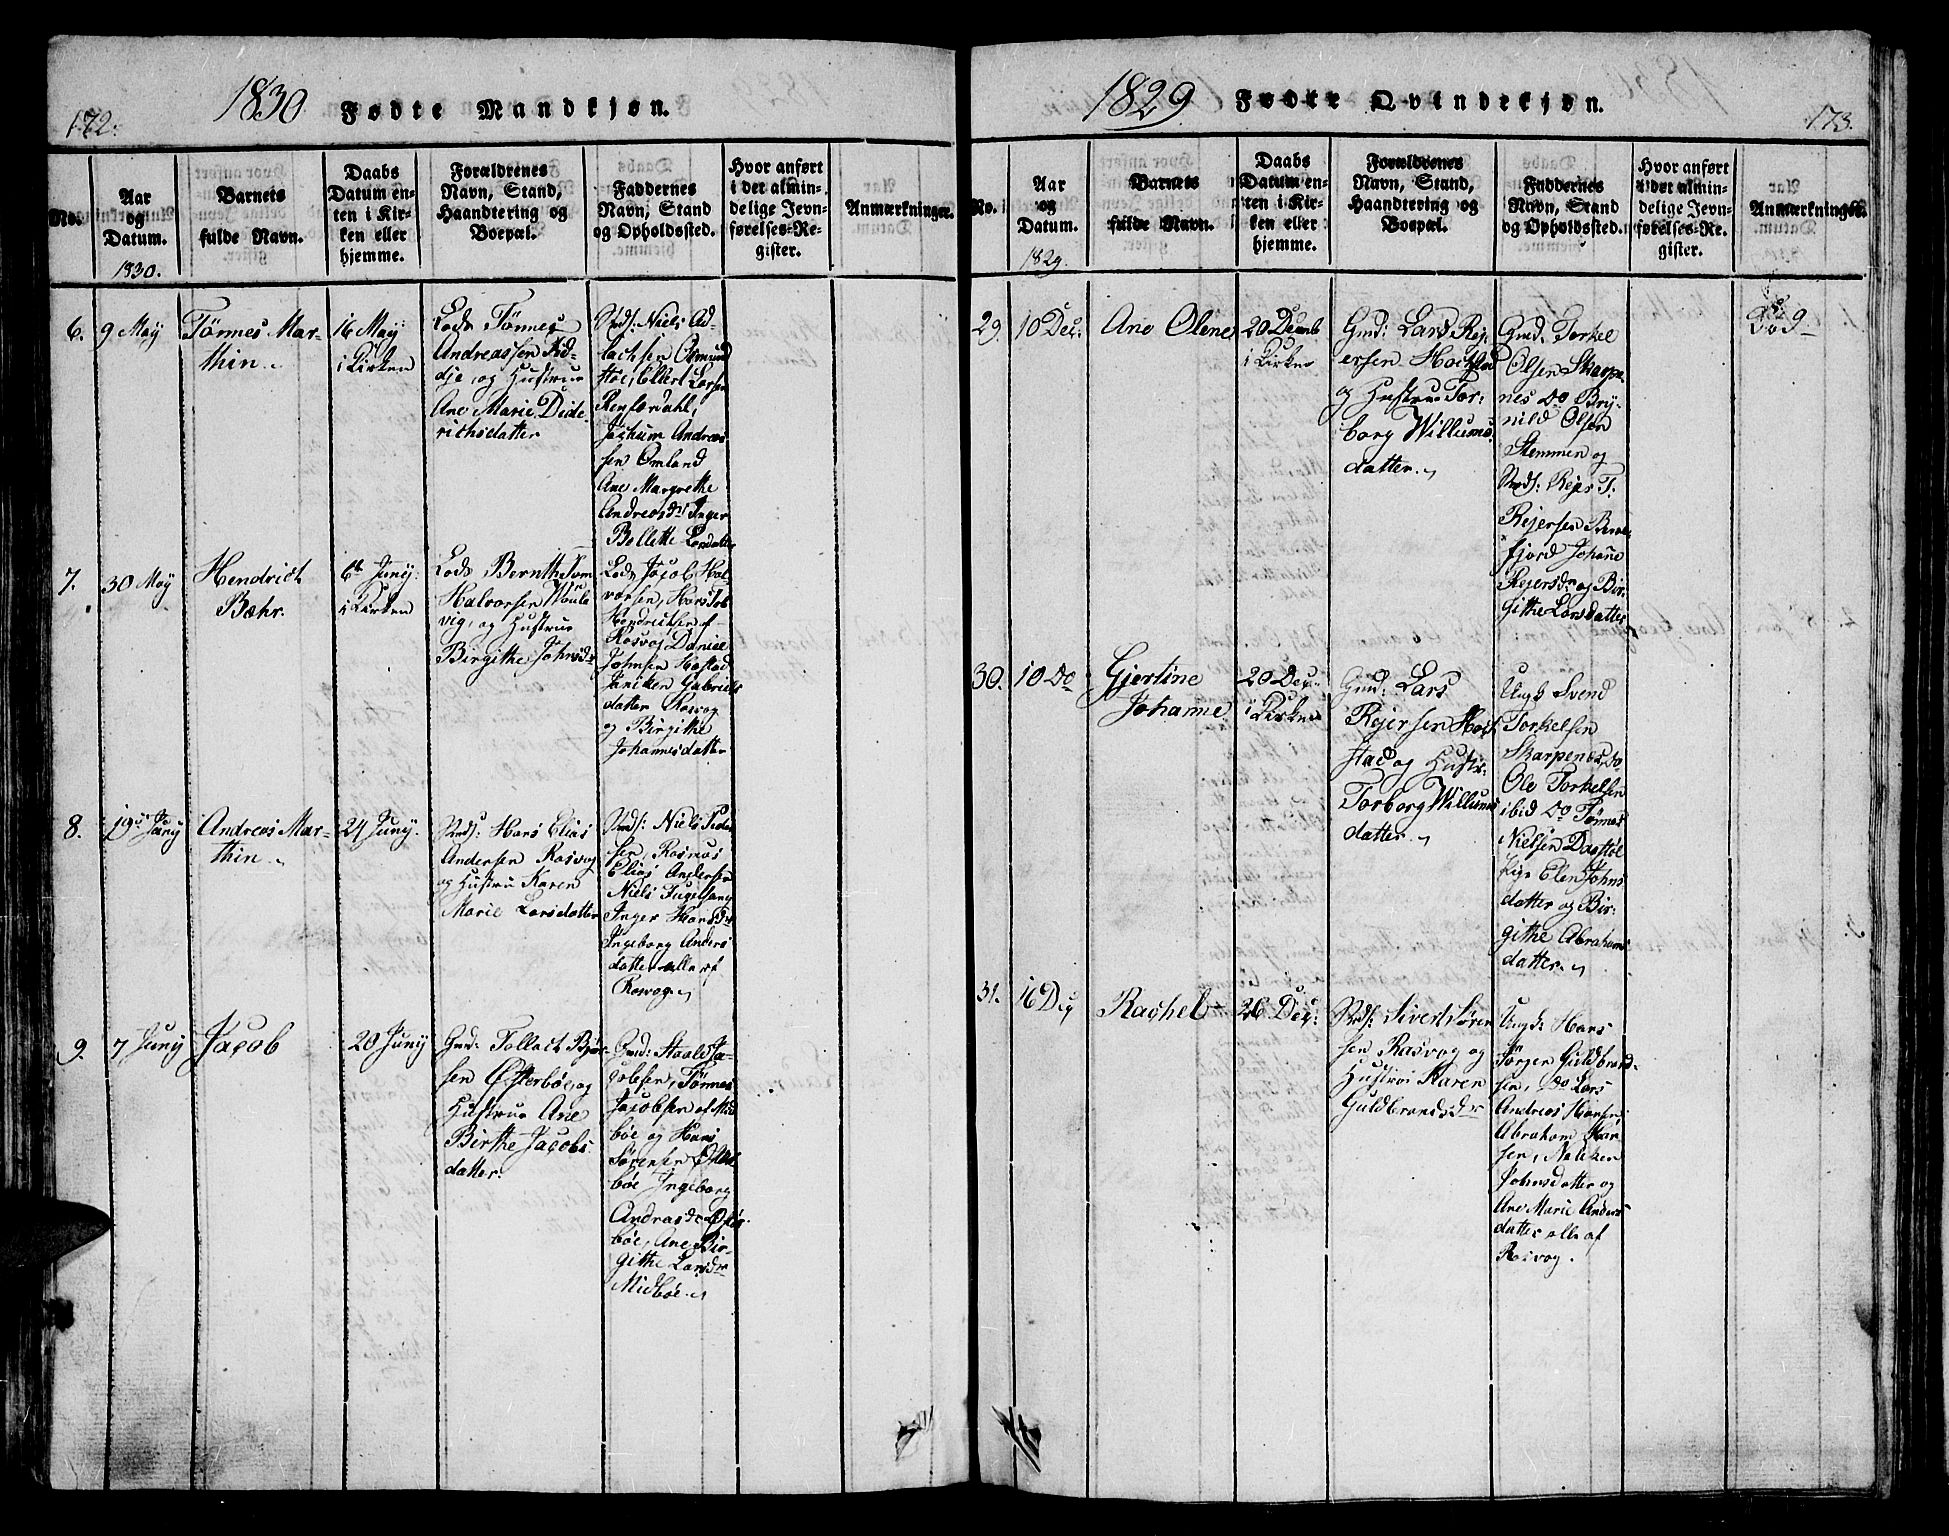 172.
1830 Fødte Mandkjøn.
No.
Aar
og
Datum.
Barnets
fulde Navn.
Daabs
Datum en-
ten i Kir-
ken eller
hjemme.
Forældrenes
Navn, Stand,
Haandtering og
Boepæl.
Faddernes
Navn, Stand
og Opholdssted.
Hvor anført
i det almin-
delige Jevn-
førelses-Re-
gister.
Anmærkninger.
1830.
6.
9 May
Tönnes Mar-
thin
16 May
i Kirken
Lods Tönnes
Andreassen
og Hustrue
Ane Marie Dide-
richsdatter
Niels Ad-
lachsen Osmund
Ellert Larsen
Jochum Andreas
sen Omland
Ane Margrethe
Andreasdr Inger
Bollette Larsdatter
7.
30 May
Hendrich
Bæhr.
6te Juny
i Kirken
Lods Bernt
Halvorsen
vig, og Hustrue
Birgithe Johnsdr
Lods Jacob Hal-
vorsen, Hans Job
Hendrichsen af
Rosvog Daniel
Johnsen
Janiken Gabriels
datter Rosvog
og Birgithe
Johannesdatter
8.
19de Juny
Andreas Mar-
thin
24 Juny.
Hans Elias
Andersen Rosvog
og Hustrue Karen
Marie Larsdatter
Niels Peder
sen, Rasmus
Elias Andersen
Niels Fugelsang
Inger Hansdr
Ingeborg Anders
datter alle af
Rosvog
9.
7 Juny
Jacob
20 Juny
Gmd: Tollach Bjør
sen Østerbøe og
Hustrue Ane
Birthe Jacobs
datter.
Gmd: Staale Ja-
cobsen, Tönnes
Jacobsen af Mid
bøe og Hans
Sörensen Øster
bøe Ingeborg
Andreasdr Øster
bøe, Ane Bir-
githe Larsdr
Midbøe
1829 Fødte Qvindekjøn.
173.
No.
Aar
og
Datum.
Barnets
fulde Navn.
Daabs
Datum en-
ten i Kir-
ken eller
hjemme.
Forældrenes
Navn, Stand,
Haandtering og
Boepæl.
Faddernes
Navn, Stand
og Opholdssted.
Hvor anført
i det almin-
delige Jevn-
førelses-Re-
gister.
Anmærkninger.
1829.
29.
10 Dec:
Ane Olene
20 Decemb
i Kirken
Gmd: Lars Rej-
ersen Hochstad
og Hustrue Tor-
borg Willums
datter
Gmd. Torkel
Olsen Skarpe-
nes Do Bry-
nild Olsen
Stemmen og
Rejer T.
Rejersen
fjord Johane
Rejersdr og Bir-
githe Larsdatter
30.
10 Do
Gjertine
Johanne
20 Dec
i Kirken
Gmd: Lars
Rejersen Hoch
stad og Hustr:
Torborg Willums
datter
Ungk Svend
Torkelsen
Skarpenes, Do
Ole Torkelsen
ibid Do Tönnes
Nielsen
Pige Elen Johns
datter og Bir-
githe Abrahams
datter
31.
16 Dec
Rachel
26 Dec:
Sivert Sören
sen Rasvog og
Hustrue Karen
Guldbrandsdr
Ungk: Hans
Jörgen Guldbrand-
sen, Do Lars
Andreas Hansen
Abraham
sen, Malehen
Johnsdatter og
Ane Marie Anders
datter alle af
Rosvog.